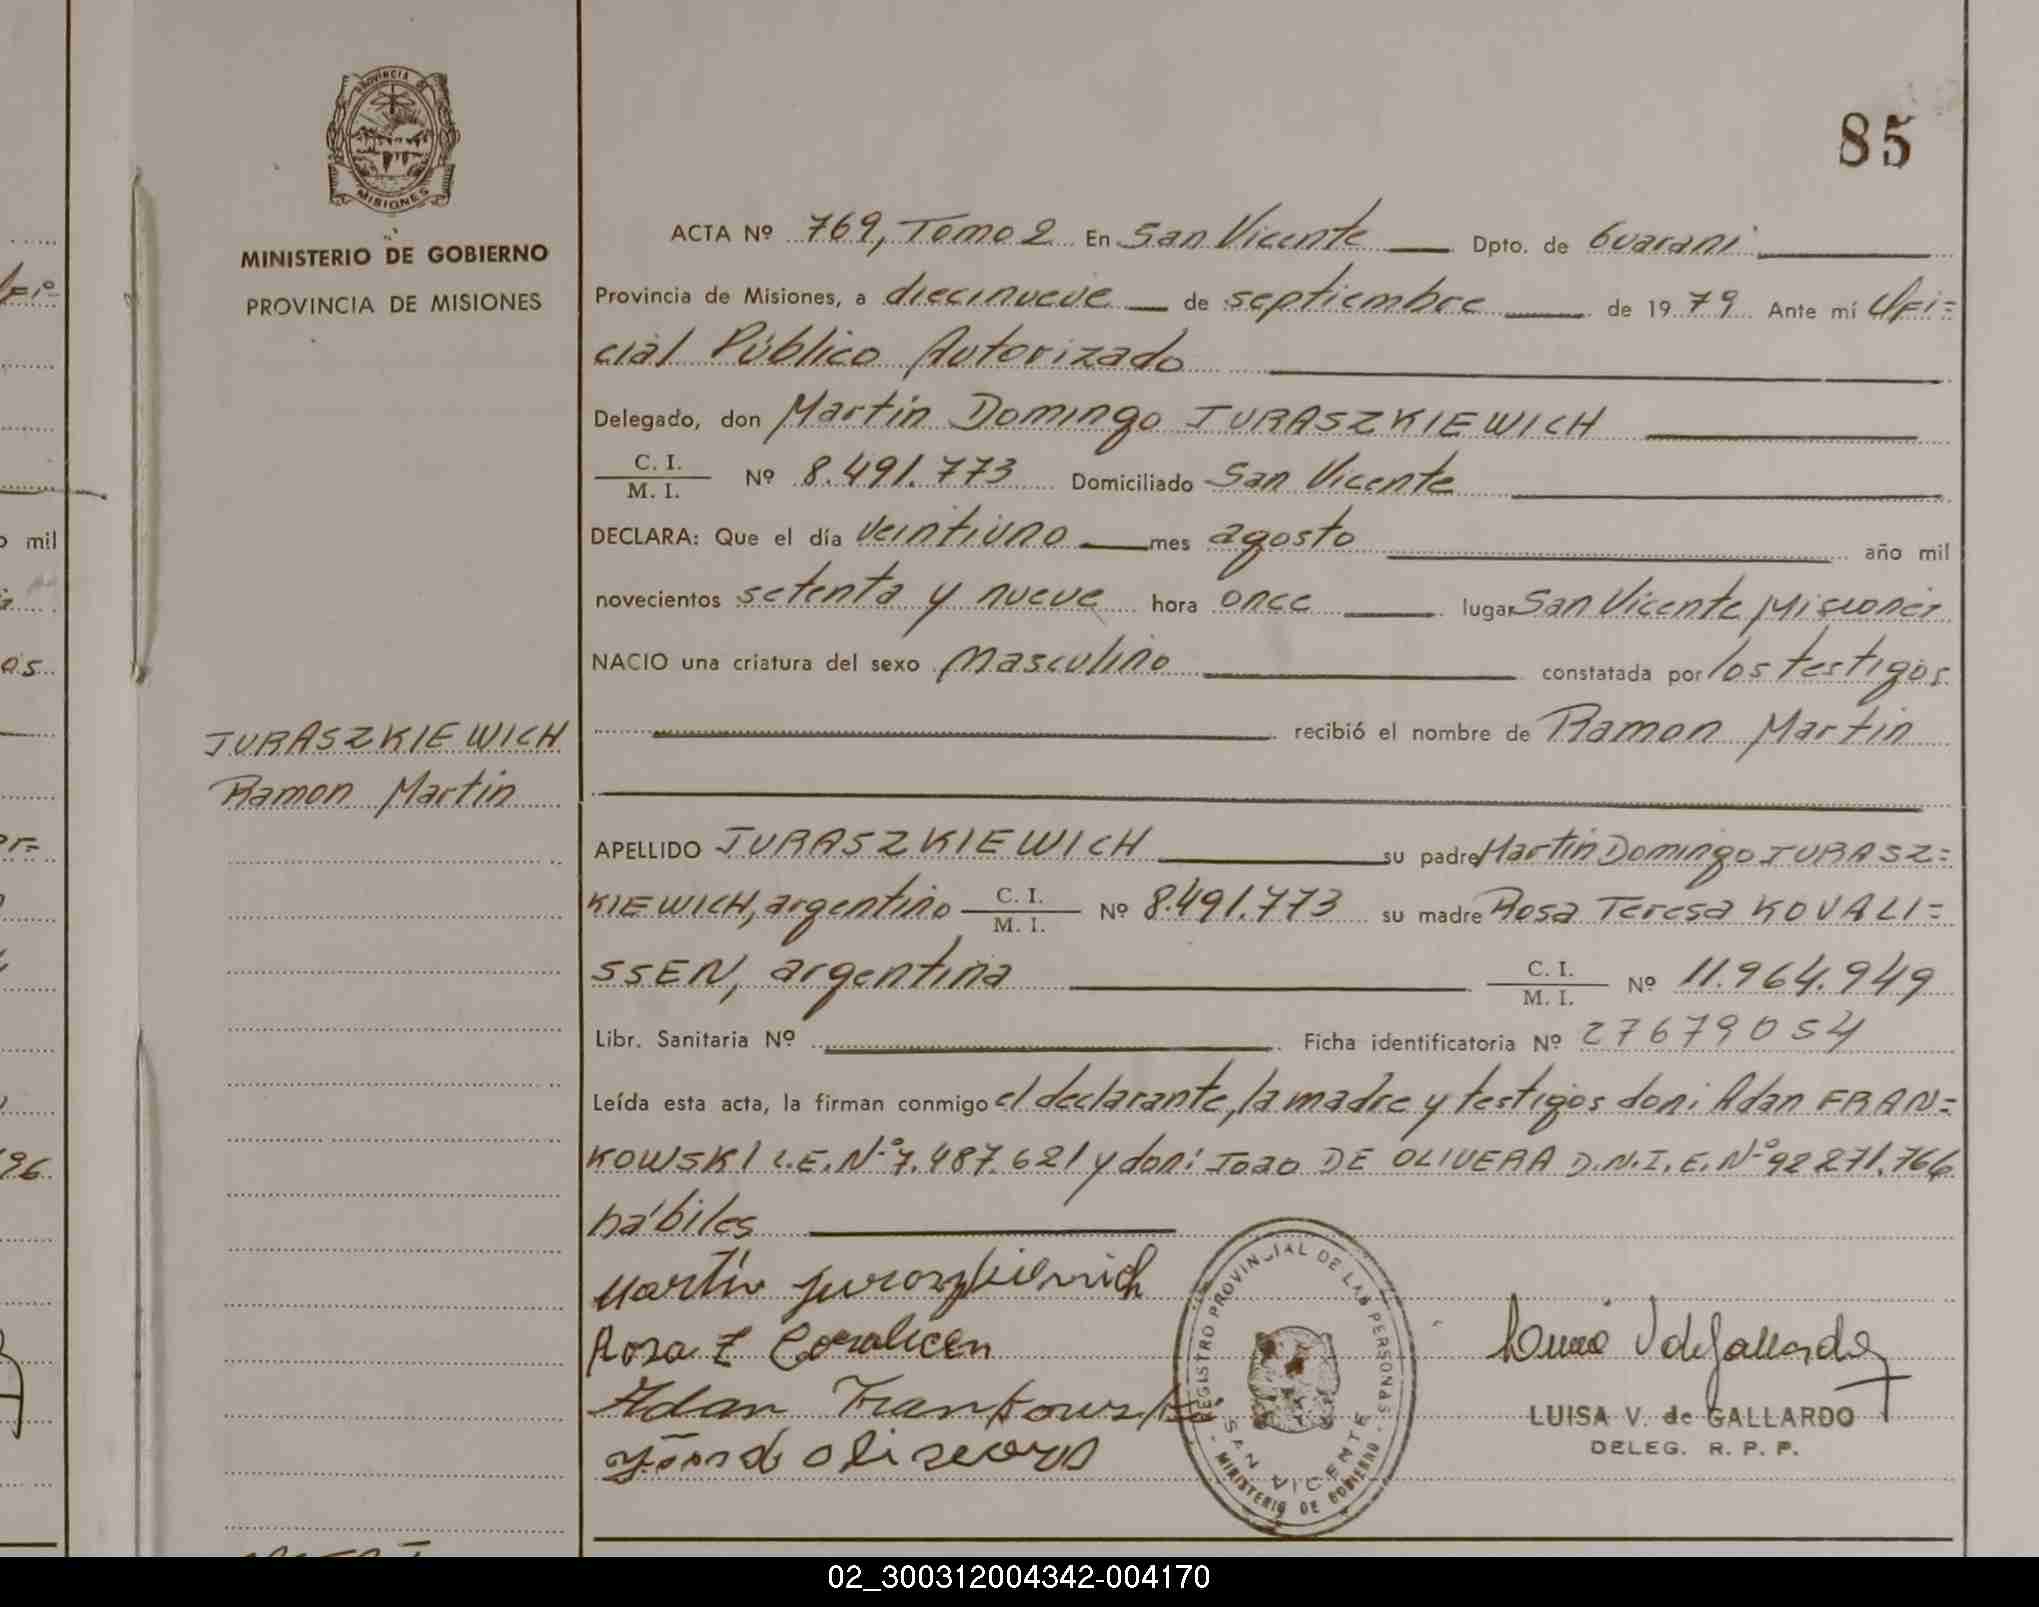 PROVINCIA DE
MISIONES
MINISTERIO DE GOBIERNO
PROVINCIA DE MISIONES
JURASZKIEWICH
Ramon Martin
85
ACTA Nº 769, Tomo 2 En San Vicente Dpto. de Guarani
Provincia de Misiones, a diecinueve de septiembre de 1979 Ante mí Ofi=
cial Público Autorizado
Delegado, don Martin Domingo JURASZKIEWICH
C. I.
M. I. Nº 8.491.773 Domiciliado San Vicente
DECLARA: Que el día veintiuno mes agosto año mil
novecientos setenta y nueve hora once lugar San Vicente Misiones
NACIO una criatura del sexo Masculino constatada por los testigos
recibió el nombre de Ramon Martin
APELLIDO JURASZKIEWICH su padre Martin Domingo JURASZ=
KIEWICH, argentino C. I. M. I. Nº 8.491.773 su madre Rosa Teresa KOVALI=
SSEN, argentina C. I. M. I. Nº 11.964.949
Libr. Sanitaria Nº Ficha identificatoria Nº 27679054
Leída esta acta, la firman conmigo el declarante, la madre y testigos don: Adan FRAN=
KOWSKI L.E. Nº 7.487.621 y don: Joao DE OLIVERA D.N.I. E. Nº 92271.766
hábiles
Martin Juraszkiewich
Rosa T Covalicen
Adan Frankowski
REGISTRO PROVINCIAL DE LAS PERSONAS
SAN VICENTE
MINISTERIO DE GOBIERNO
LUISA V. de GALLARDO
DELEG. R. P. P.
02_300312004342-004170